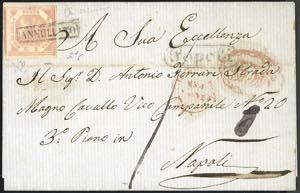 ANNULLATO
A Sua Eccellenza
Il Sig. D. Antonio Ferrari Strada
Magno Cavallo Vico Campanile No. 20
3o. Piano in
Napoli